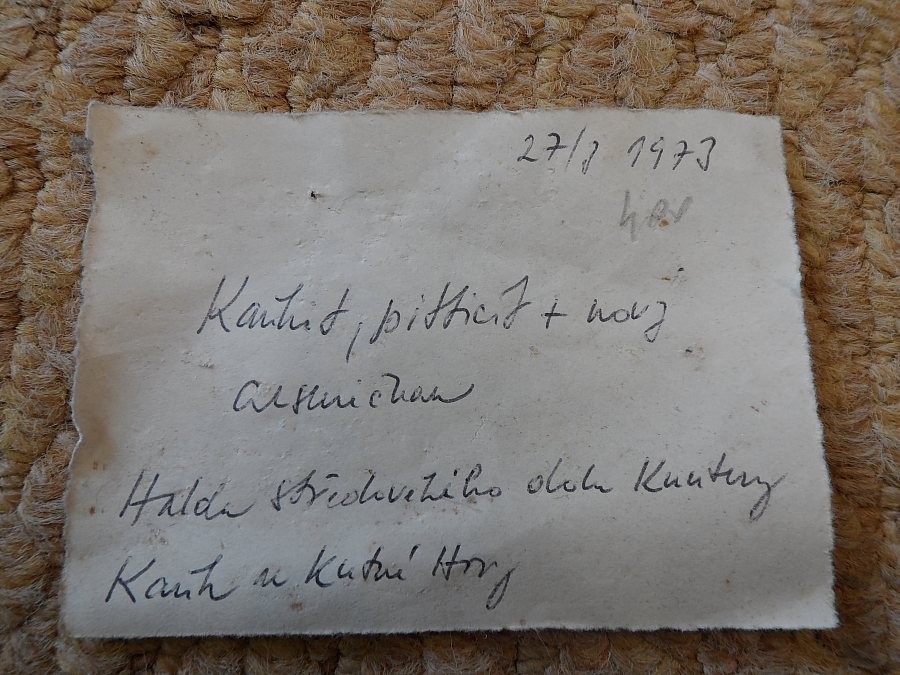 27/3 1973
Kaňkit, pitticit + nový
arseničnan
Halda středověkého dolu Kuntery
Kaňk u Kutné Hory